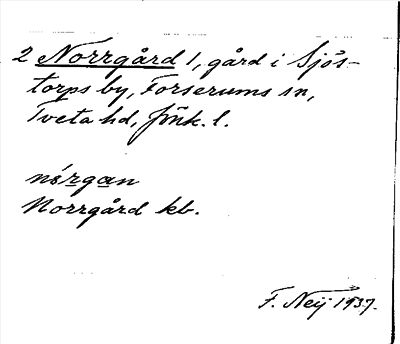 2 Norrgård 1, gård i Sjös-
torps by, Forserums sn,
Tveta hd, Jönk. l.
nórgan
Norrgård kb.
F. Neij 1937.